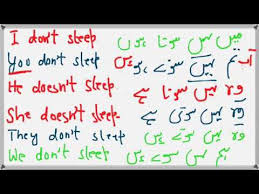 I don't sleep میں نہیں سوتا ہوں
You don't sleep تم نہیں سوتے ہو
He doesn't sleep وہ نہیں سوتا ہے
She doesn't sleep وہ نہیں سوتی ہے
They don't sleep وہ نہیں سوتے ہیں
We don't sleep ہم نہیں سوتے ہیں